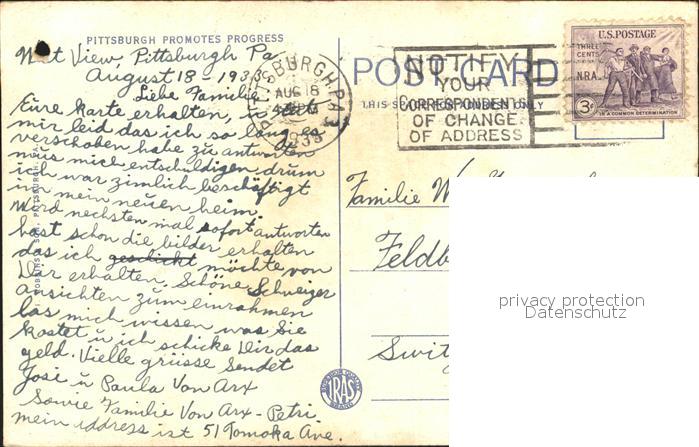 PITTSBURGH PROMOTES PROGRESS
West View, Pittsburgh Pa.
August 18 - 1933
Liebe Familie
Eure Karte erhalten, u
mir leid das ich so lang es
verschoben habe zu antworten
mus mich entschuldigen drum
ich war zimlich beschäftigt
in mein neuen heim.
Werd nechsten mal sofort antworten
hast schon die bilder erhalten
das ich geschickt möchte von
Dir erhalten Schöne Schweizer
Ansichten zum einrahmen
las mich wissen was Sie
kostet u ich schicke Dir das
geld. Vielle grüsse Sendet
Josi u Paula Von Arx
Sowie Familie Von Arx - Petri
mein address ist 51 Tomoka Ave.
PITTSBURGH, PA.
AUG 18
1933
NOTIFY
YOUR
CORRESPONDENTS
OF CHANGE
OF ADDRESS
POST CARD
THIS SIDE FOR ONLY
U.S. POSTAGE
THREE
CENTS
N.R.A.
3¢
IN A COMMON DETERMINATION
Familie
Feldb
Swit
privacy protection
Datenschutz
IRAS
PITTSBURGH, PA.